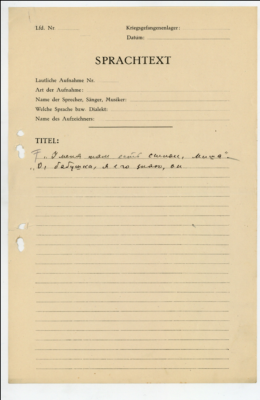 Lfd. Nr.
Kriegsgefangenenlager:
Datum:
SPRACHTEXT
Lautliche Aufnahme Nr.
Art der Aufnahme:
Name der Sprecher, Sänger, Musiker:
Welche Sprache bzw. Dialekt:
Name des Aufzeichners:
TITEL:
бабушка, я его знаю, он